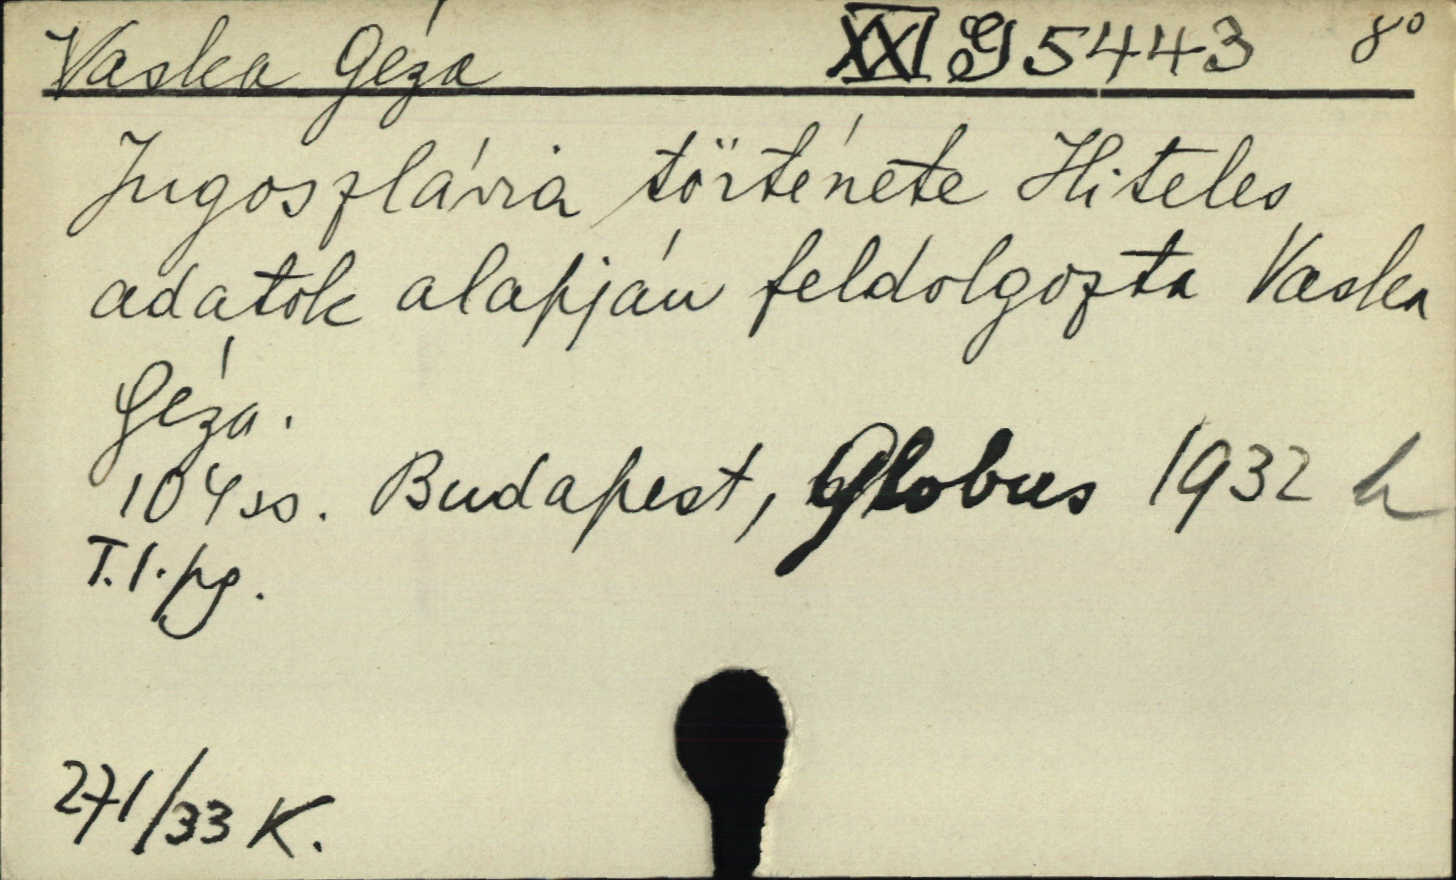 Vaska Géza XXI G 5443 8°
Jugoszlávia története Hiteles
adatok alapján feldolgozta Vaska
Géza.
104 ss. Budapest, Globus 1932 h
T. 1. pg.
271/33 K.